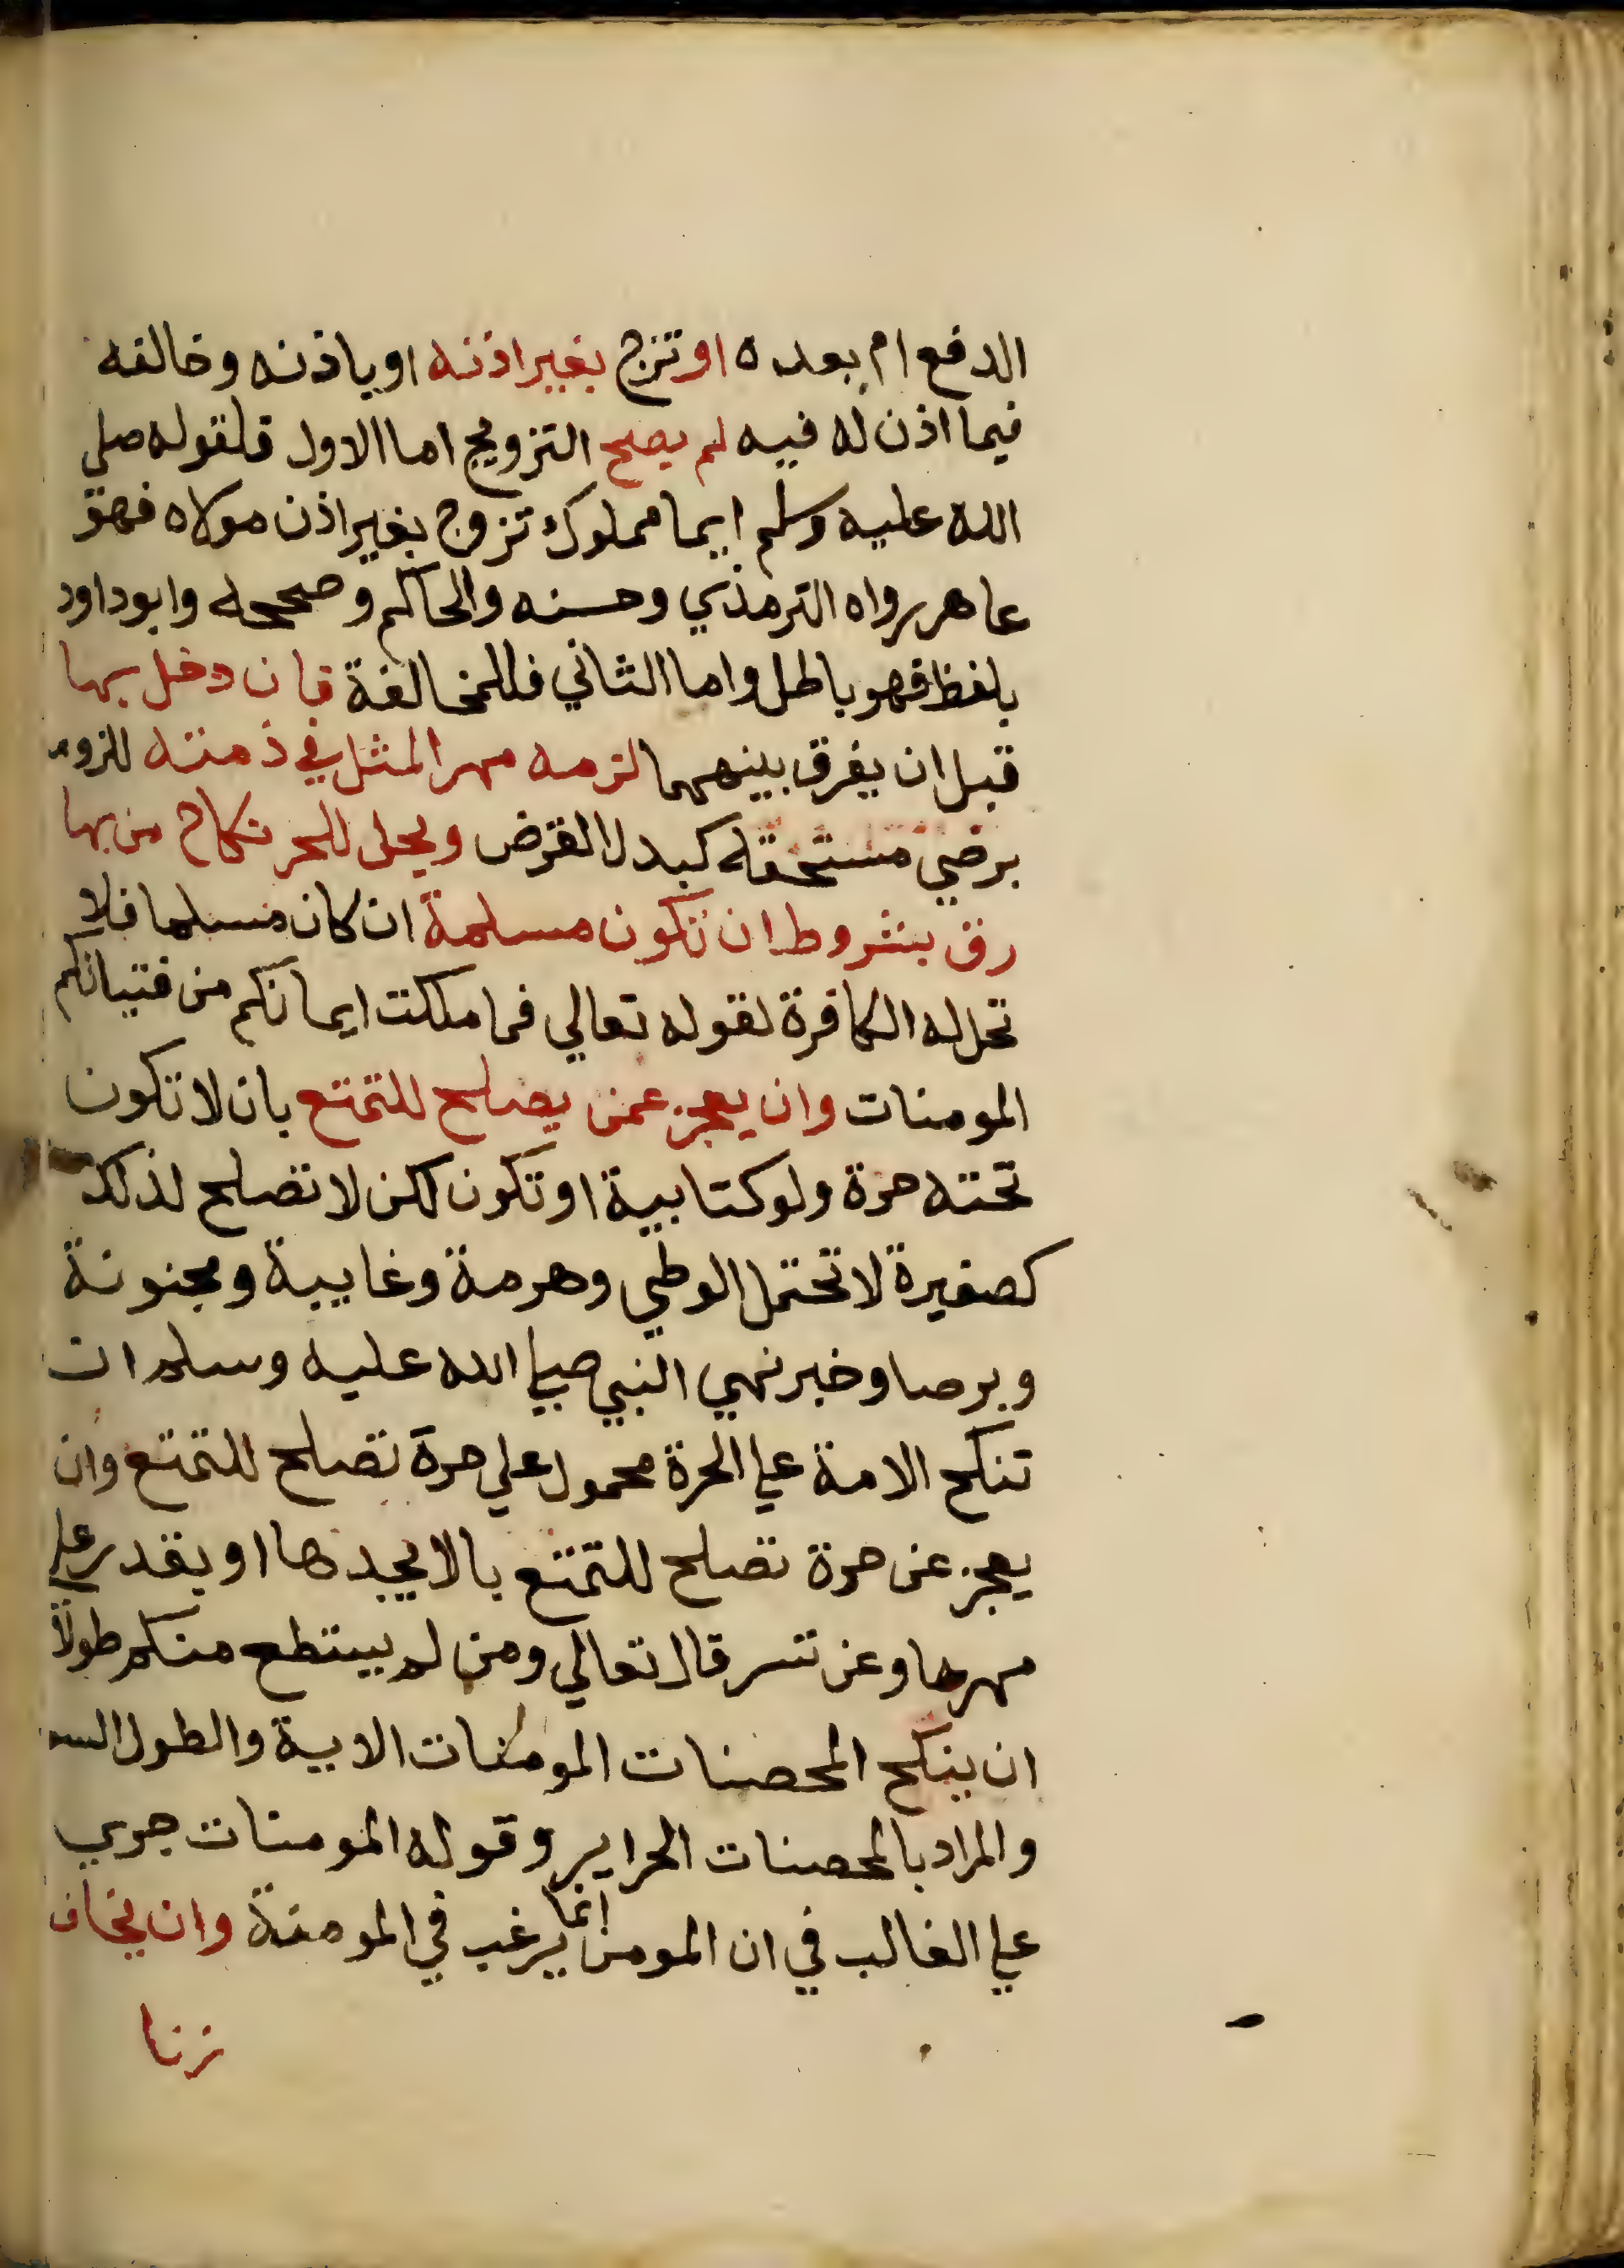 الدفع ام بعده او تزج بغير اذنه او باذنه وخالفه
فيما اذن له فيه لم يصح التزويج اما الاول فلقوله صلي
الله عليه وسلم ايما مملوك تزوج بغير اذن مولاه فهو
عاهر رواه الترمذي وحسنه والحاكم وصححه وابو داود
بلفظ فهو باطل واما الثاني فللمخالفة فان دخل بها
قبل ان يفرق بينهما لزمه مهر المثل في ذمته للزومه
برضي مستحقه كبدل القرض ويحل للحر نكاح من بها
رق بشروط ان تكون مسلمة ان كان مسلما فلا
تحل له الكافرة لقوله تعالي فما ملكت ايمانكم من فتياتكم
المومنات وان يعجز عمن يصلح للتمتع بان لا تكون
تحته حرة ولو كتابية او تكون لكن لا تصلح لذلك
كصغيرة لا تحتمل الوطي وهرمة وغايبة ومجنونة
وبرصا وخبر نهي النبي صلي الله عليه وسلم ان
تنكح الامة علي الحرة محمول علي حرة تصلح للتمتع وان
يعجز عن حرة تصلح للتمتع بالا يجدها او يقدر علي
مهرها وعن تسر قال تعالي ومن لم يستطع منكم طولا
ان ينكح المحصنات المومنات الاية والطول
والمراد بالمحصنات الحراير وقوله المومنات جري
علي الغالب في ان المومن انما يرغب في المومنة وان يخاف
زنا